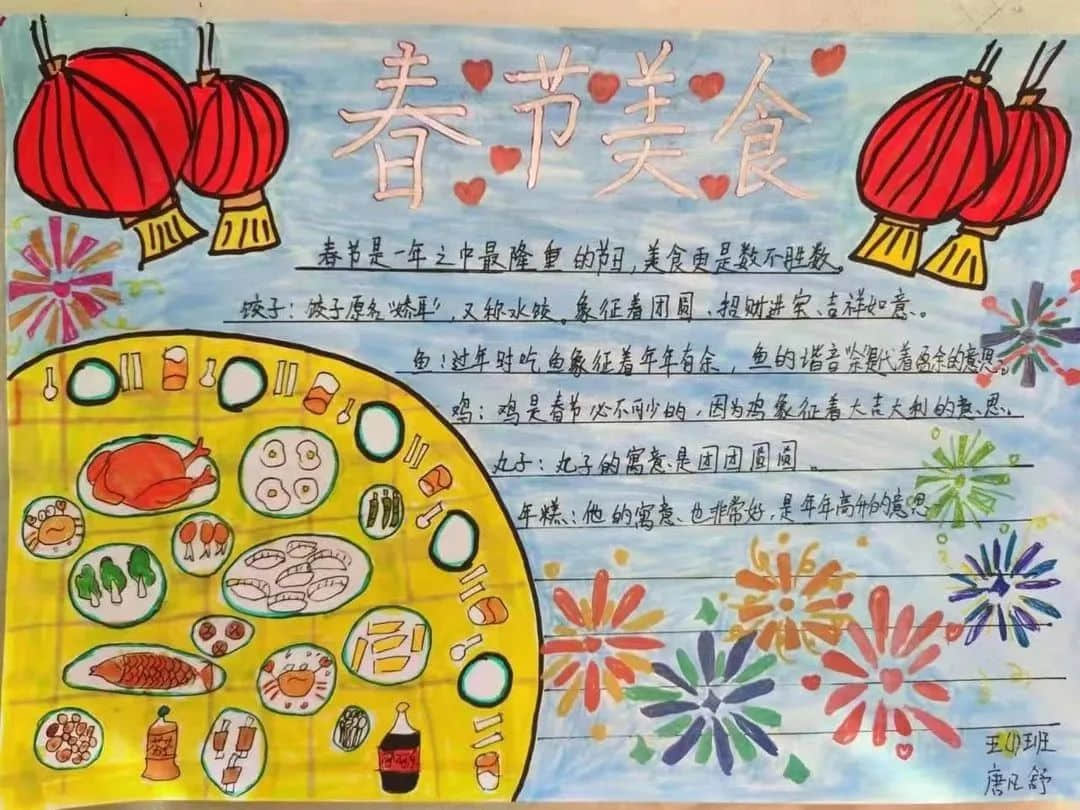 春节美食
春节是一年之中最隆重的节日,美食更是数不胜数。
饺子:饺子原名"娇耳",又称水饺。象征着团圆、招财进宝、吉祥如意。
鱼:过年时吃鱼象征着年年有余,鱼的谐音余更代表着的意思。
鸡:鸡是春节必不可少的,因为鸡象征着大吉大利的意思。
丸子:丸子的寓意是团团圆圆。
年糕:他的寓意也非常好,是年年高升的意思
五(1)班
唐凡舒